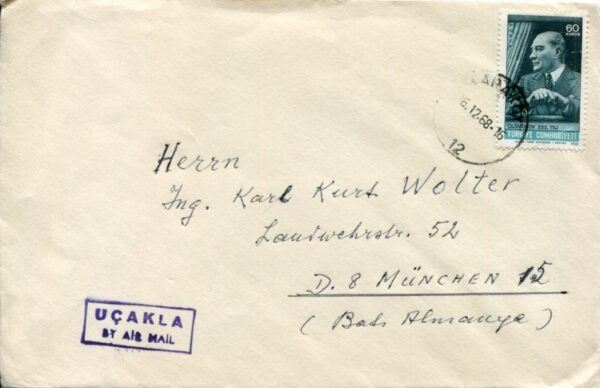 60
KURUŞ
TÜRKİYE CUMHURİYETİ
6.12.68-16
12
Herrn
Ing. Karl Kurt Wolter
Landwehrstr. 52
D. 8 MÜNCHEN 15
(Batı Almanya)
UÇAKLA
BY AIR MAIL